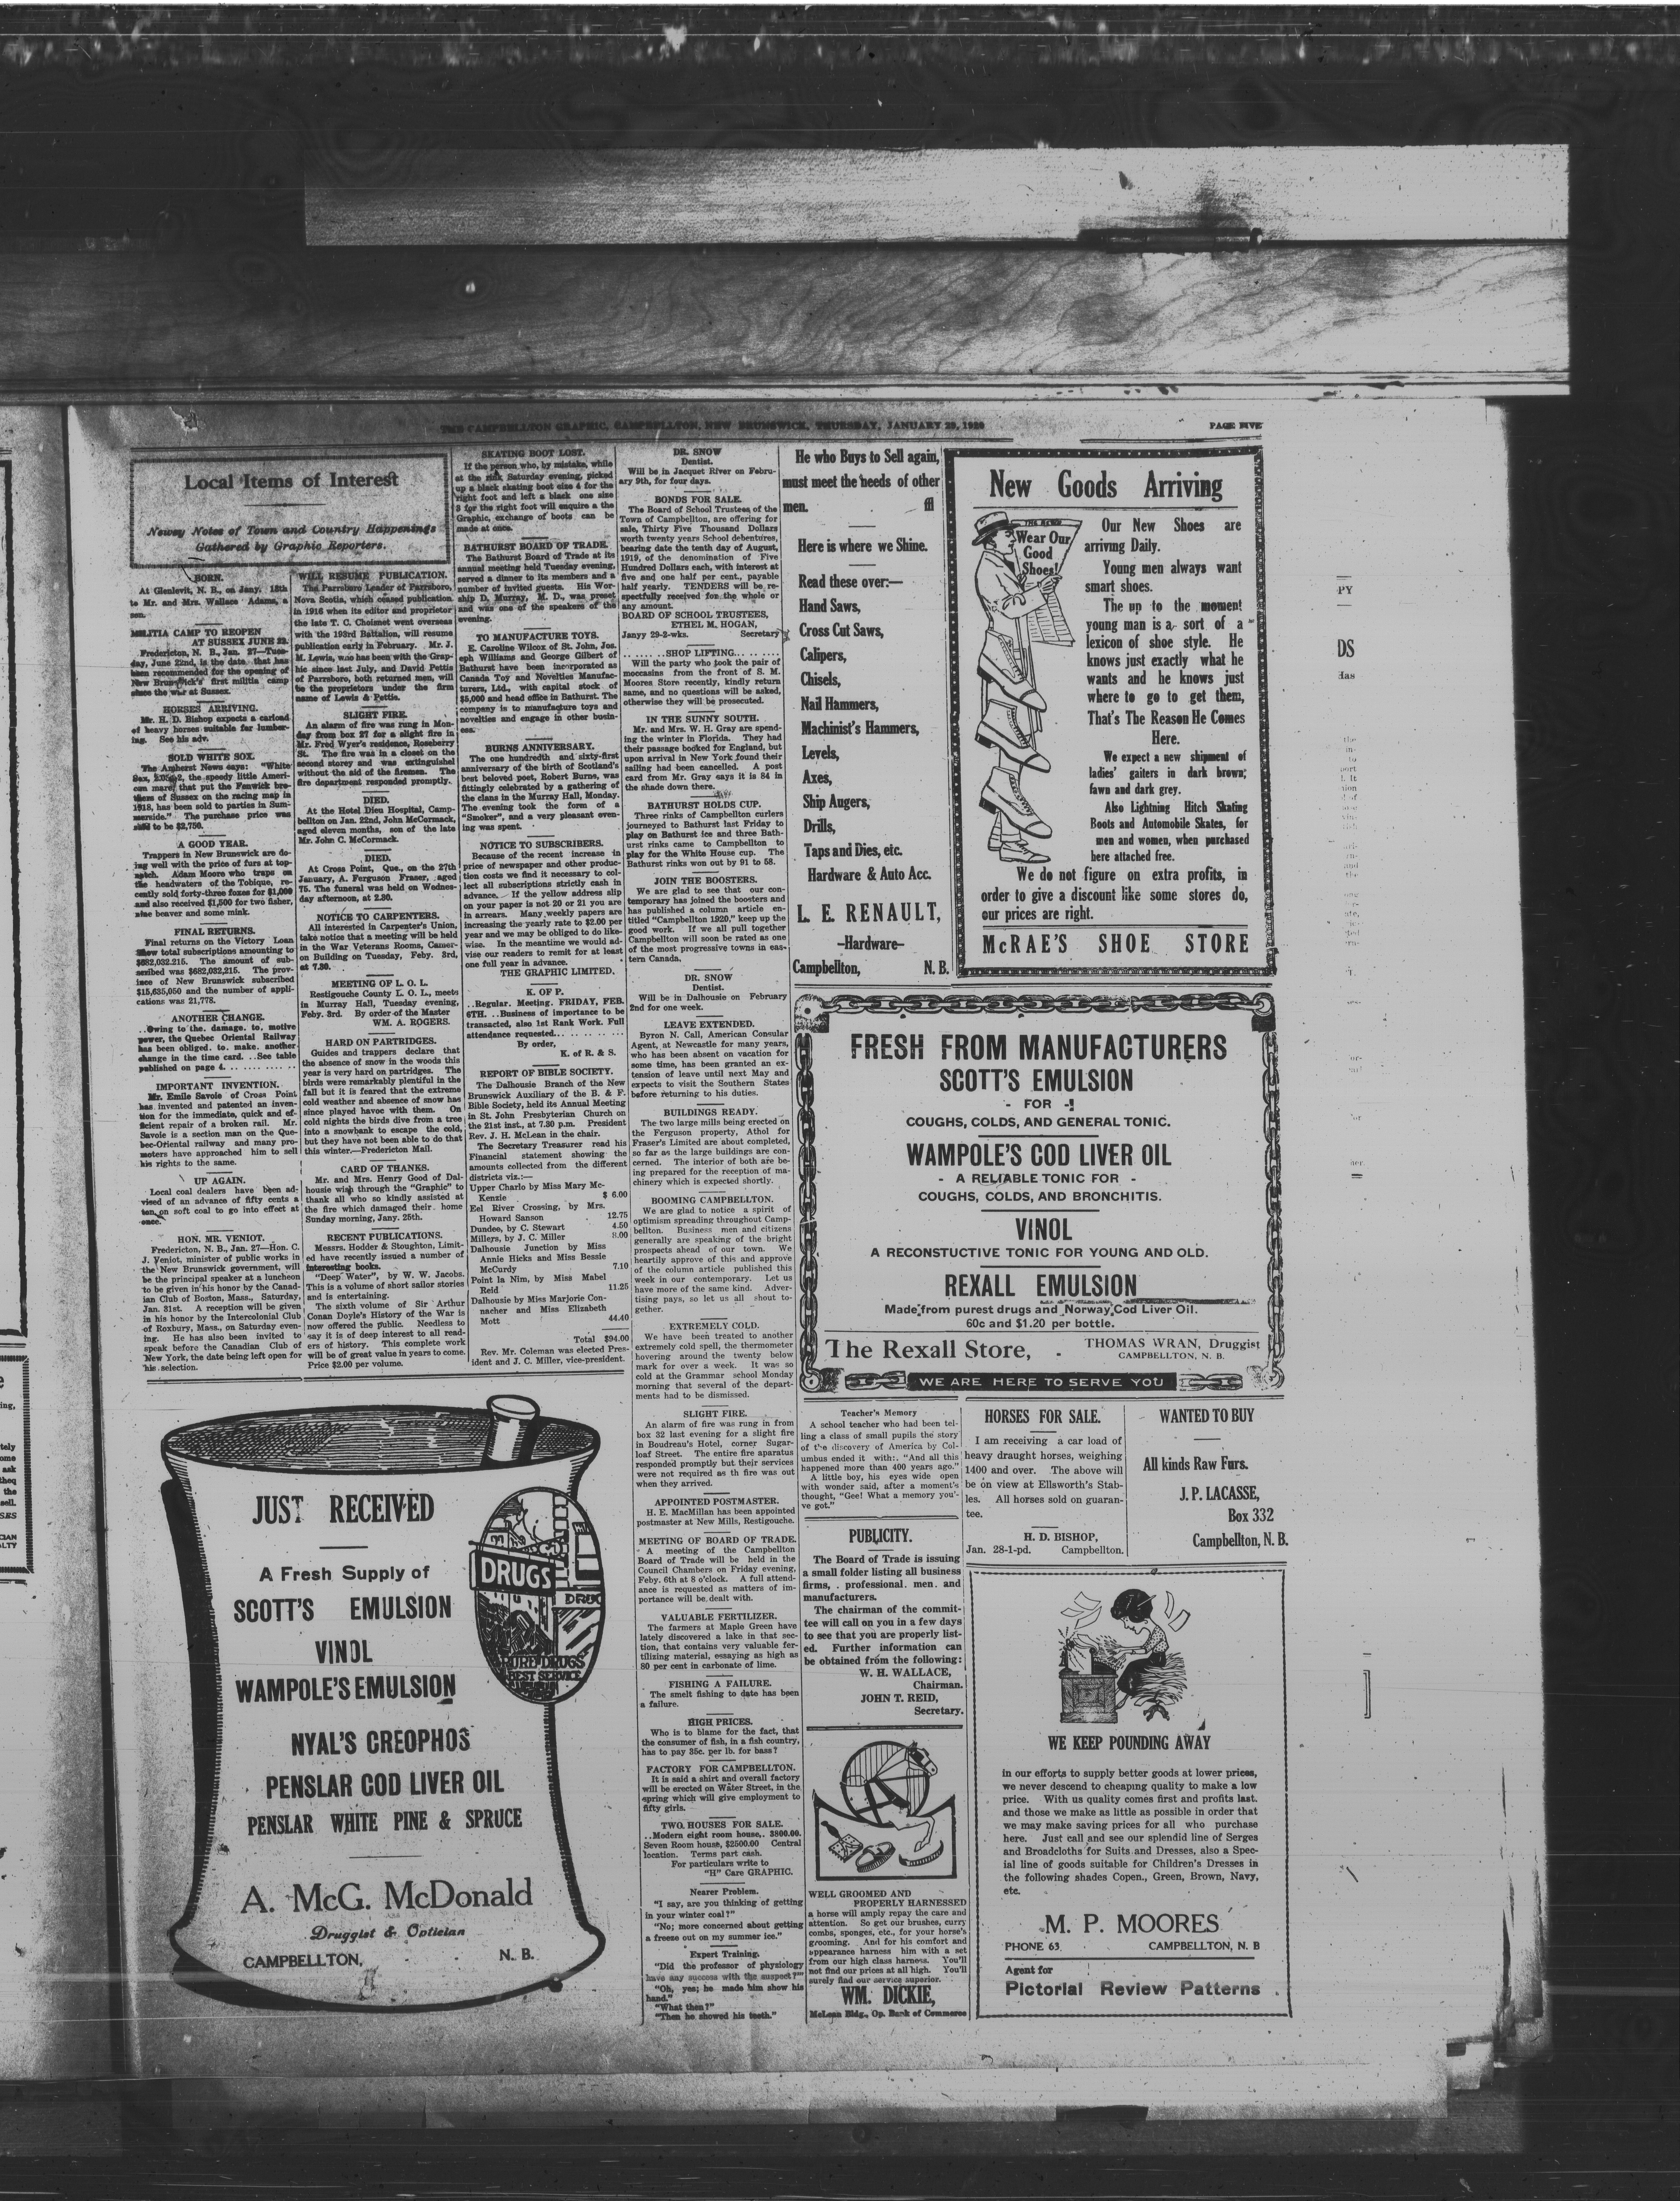 THE CAMPBELLTON GRAPHIC, CAMPBELLTON, NEW BRUNSWICK, THURSDAY, JANUARY 29, 1920
PAGE FIVE
Local Items of Interest
Newsy Notes of Town and Country Happenings
Gathered by Graphic Reporters.
BORN.
At Glenlevit, N. B., on Jany. 18th
to Mr. and Mrs. Wallace Adams, a
son.
MILITIA CAMP TO REOPEN
AT SUSSEX JUNE 22.
Fredericton, N. B., Jan. 27—Tues-
day, June 22nd, is the date that has
been recommended for the opening of
New Brunswick's first militia camp
since the war at Sussex.
HORSES ARRIVING.
Mr. H. D. Bishop expects a carload
of heavy horses suitable for lumber-
ing. See his adv.
SOLD WHITE SOX.
The Amherst News says: "White
Sox, the speedy little Ameri-
can mare, that put the Fenwick bro-
thers of Sussex on the racing map in
1918, has been sold to parties in Sum-
merside." The purchase price was
said to be $2,750.
A GOOD YEAR.
Trappers in New Brunswick are do-
ing well with the price of furs at top-
notch. Adam Moore who traps on
the headwaters of the Tobique, re-
cently sold forty-three foxes for $1,000
and also received $1,500 for two fisher,
nine beaver and some mink.
FINAL RETURNS.
Final returns on the Victory Loan
show total subscriptions amounting to
$682,032.215. The amount of sub-
scribed was $682,032,215. The prov-
ince of New Brunswick subscribed
$15,635,050 and the number of appli-
cations was 21,778.
ANOTHER CHANGE.
..Owing to the. damage. to. motive
power, the Quebec Oriental Railway
has been obliged. to. make. another
change in the time card. ..See table
published on page 4. ... ... ... ...
IMPORTANT INVENTION.
Mr. Emile Savoie of Cross Point
has invented and patented an inven-
tion for the immediate, quick and ef-
ficient repair of a broken rail. Mr.
Savoie is a section man on the Que-
bec-Oriental railway and many pro-
moters have approached him to sell
his rights to the same.
UP AGAIN.
Local coal dealers have been ad-
vised of an advance of fifty cents a
ton on soft coal to go into effect at
once.
HON. MR. VENIOT.
Fredericton, N. B., Jan. 27—Hon. C.
J. Veniot, minister of public works in
the New Brunswick government, will
be the principal speaker at a luncheon
to be given in his honor by the Canad-
ian Club of Boston, Mass., Saturday,
Jan. 31st. A reception will be given
in his honor by the Intercolonial Club
of Roxbury, Mass., on Saturday even-
ing. He has also been invited to
speak before the Canadian Club of
New York, the date being left open for
his selection.
WILL RESUME PUBLICATION.
The Parrsboro Leader of Parrsboro,
Nova Scotia, which ceased publication
in 1916 when its editor and proprietor
the late T. C. Choisnet went overseas
with the 193rd Battalion, will resume
publication early in February. Mr. J.
M. Lewis, who has been with the Grap-
hic since last July, and David Pettis
of Parrsboro, both returned men, will
be the proprietors under the firm
name of Lewis & Pettis.
SLIGHT FIRE.
An alarm of fire was rung in Mon-
day from box 27 for a slight fire in
Mr. Fred Wyer's residence, Roseberry
St. The fire was in a closet on the
second storey and was extinguished
without the aid of the firemen. The
fire department responded promptly.
DIED.
At the Hotel Dieu Hospital, Camp-
bellton on Jan. 22nd, John McCormack,
aged eleven months, son of the late
Mr. John C. McCormack.
DIED.
At Cross Point, Que., on the 27th
January, A. Ferguson Fraser, aged
75. The funeral was held on Wednes-
day afternoon, at 2.30.
NOTICE TO CARPENTERS.
All interested in Carpenter's Union,
take notice that a meeting will be held
in the War Veterans Rooms, Camer-
on Building on Tuesday, Feby. 3rd,
at 7.30.
MEETING OF L. O. L.
Restigouche County L. O. L., meets
in Murray Hall, Tuesday evening,
Feby. 3rd. By order of the Master
WM. A. ROGERS.
HARD ON PARTRIDGES.
Guides and trappers declare that
the absence of snow in the woods this
year is very hard on partridges. The
birds were remarkably plentiful in the
fall but it is feared that the extreme
cold weather and absence of snow has
since played havoc with them. On
cold nights the birds dive from a tree
into a snowbank to escape the cold,
but they have not been able to do that
this winter.—Fredericton Mail.
CARD OF THANKS.
Mr. and Mrs. Henry Good of Dal-
housie wish through the "Graphic" to
thank all who so kindly assisted at
the fire which damaged their home
Sunday morning, Jany. 25th.
RECENT PUBLICATIONS.
Messrs. Hodder & Stoughton, Limit-
ed have recently issued a number of
interesting books.
"Deep Water", by W. W. Jacobs.
This is a volume of short sailor stories
and is entertaining.
The sixth volume of Sir Arthur
Conan Doyle's History of the War is
now offered the public. Needless to
say it is of deep interest to all read-
ers of history. This complete work
will be of great value in years to come.
Price $2.00 per volume.
SKATING BOOT LOST.
If the person who, by mistake, while
at the rink Saturday evening, picked
up a black skating boot size 4 for the
right foot and left a black one size
3 for the right foot will enquire a the
Graphic, exchange of boots can be
made at once.
BATHURST BOARD OF TRADE.
The Bathurst Board of Trade at its
annual meeting held Tuesday evening,
served a dinner to its members and a
number of invited guests. His Wor-
ship D. Murray, M. D., was preset
and was one of the speakers of the
evening.
TO MANUFACTURE TOYS.
E. Caroline Wilcox of St. John, Jos.
eph Williams and George Gilbert of
Bathurst have been incorporated as
Canada Toy and Novelties Manufac-
turers, Ltd., with capital stock of
$5,000 and head office in Bathurst. The
company is to manufacture toys and
novelties and engage in other busin-
ess.
BURNS ANNIVERSARY.
The one hundredth and sixty-first
anniversary of the birth of Scotland's
best beloved poet, Robert Burns, was
fittingly celebrated by a gathering of
the clans in the Murray Hall, Monday.
The evening took the form of a
"Smoker", and a very pleasant even-
ing was spent.
NOTICE TO SUBSCRIBERS.
Because of the recent increase in
price of newspaper and other produc-
tion costs we find it necessary to col-
lect all subscriptions strictly cash in
advance. If the yellow address slip
on your paper is not 20 or 21 you are
in arrears. Many weekly papers are
increasing the yearly rate to $2.00 per
year and we may be obliged to do like-
wise. In the meantime we would ad-
vise our readers to remit for at least
one full year in advance.
THE GRAPHIC LIMITED.
K. OF P.
..Regular. Meeting. FRIDAY, FEB.
6TH. ..Business of importance to be
transacted, also 1st Rank Work. Full
attendance requested... ... ... ...
By order,
K. of R. & S.
REPORT OF BIBLE SOCIETY.
The Dalhousie Branch of the New
Brunswick Auxiliary of the B. & F.
Bible Society, held its Annual Meeting
in St. John Presbyterian Church on
the 21st inst., at 7.30 p.m. President
Rev. J. H. McLean in the chair.
The Secretary Treasurer read his
Financial statement showing the
amounts collected from the different
districts viz.:—
Upper Charlo by Miss Mary Mc-
Kenzie $ 6.00
Eel River Crossing, by Mrs.
Howard Sanson 12.75
Dundee, by C. Stewart 4.50
Millers, by J. C. Miller 8.00
Dalhousie Junction by Miss
Annie Hicks and Miss Bessie
McCurdy 7.10
Point la Nim, by Miss Mabel
Reid 11.25
Dalhousie by Miss Marjorie Con-
nacher and Miss Elizabeth
Mott 44.40
Total $94.00
Rev. Mr. Coleman was elected Pres-
ident and J. C. Miller, vice-president.
DR. SNOW
Dentist.
Will be in Jacquet River on Febru-
ary 9th, for four days.
BONDS FOR SALE.
The Board of School Trustees of the
Town of Campbellton, are offering for
sale, Thirty Five Thousand Dollars
worth twenty years School debentures,
bearing date the tenth day of August,
1919, of the denomination of Five
Hundred Dollars each, with interest at
five and one half per cent., payable
half yearly. TENDERS will be re-
spectfully received for the whole or
any amount.
BOARD OF SCHOOL TRUSTEES,
ETHEL M. HOGAN,
Janyy 29-2-wks. Secretary
.......SHOP LIFTING.......
Will the party who took the pair of
moccasins from the front of S. M.
Moores Store recently, kindly return
same, and no questions will be asked,
otherwise they will be prosecuted.
IN THE SUNNY SOUTH.
Mr. and Mrs. W. H. Gray are spend-
ing the winter in Florida. They had
their passage booked for England, but
upon arrival in New York found their
sailing had been cancelled. A post
card from Mr. Gray says it is 84 in
the shade down there.
BATHURST HOLDS CUP.
Three rinks of Campbellton curlers
journeyed to Bathurst last Friday to
play on Bathurst ice and three Bath-
urst rinks came to Campbellton to
play for the White House cup. The
Bathurst rinks won out by 91 to 58.
JOIN THE BOOSTERS.
We are glad to see that our con-
temporary has joined the boosters and
has published a column article en-
titled "Campbellton 1920," keep up the
good work. If we all pull together
Campbellton will soon be rated as one
of the most progressive towns in eas-
tern Canada.
DR. SNOW
Dentist.
Will be in Dalhousie on February
2nd for one week.
LEAVE EXTENDED.
Byron N. Call, American Consular
Agent, at Newcastle for many years,
who has been absent on vacation for
some time, has been granted an ex-
tension of leave until next May and
expects to visit the Southern States
before returning to his duties.
BUILDINGS READY.
The two large mills being erected on
the Ferguson property, Athol for
Fraser's Limited are about completed,
so far as the large buildings are con-
cerned. The interior of both are be-
ing prepared for the reception of ma-
chinery which is expected shortly.
BOOMING CAMPBELLTON.
We are glad to notice a spirit of
optimism spreading throughout Camp-
bellton. Business men and citizens
generally are speaking of the bright
prospects ahead of our town. We
heartily approve of this and approve
of the column article published this
week in our contemporary. Let us
have more of the same kind. Adver-
tising pays, so let us all shout to-
gether.
EXTREMELY COLD.
We have been treated to another
extremely cold spell, the thermometer
hovering around the twenty below
mark for over a week. It was so
cold at the Grammar school Monday
morning that several of the depart-
ments had to be dismissed.
SLIGHT FIRE.
An alarm of fire was rung in from
box 32 last evening for a slight fire
in Boudreau's Hotel, corner Sugar-
loaf Street. The entire fire apparatus
responded promptly but their services
were not required as th fire was out
when they arrived.
APPOINTED POSTMASTER.
H. E. MacMillan has been appointed
postmaster at New Mills, Restigouche.
MEETING OF BOARD OF TRADE.
A meeting of the Campbellton
Board of Trade will be held in the
Council Chambers on Friday evening,
Feby. 6th at 8 o'clock. A full attend-
ance is requested as matters of im-
portance will be dealt with.
VALUABLE FERTILIZER.
The farmers at Maple Green have
lately discovered a lake in that sec-
tion, that contains very valuable fer-
tilizing material, essaying as high as
80 per cent in carbonate of lime.
FISHING A FAILURE.
The smelt fishing to date has been
a failure.
HIGH PRICES.
Who is to blame for the fact, that
the consumer of fish, in a fish country,
has to pay 35c. per lb. for bass?
FACTORY FOR CAMPBELLTON.
It is said a shirt and overall factory
will be erected on Water Street, in the
spring which will give employment to
fifty girls.
TWO. HOUSES FOR SALE.
..Modern eight room house,. $800.00.
Seven Room house, $2500.00 Central
location. Terms part cash.
For particulars write to
"H" Care GRAPHIC.
Nearer Problem.
"I say, are you thinking of getting
in your winter coal?"
"No; more concerned about getting
a freeze out on my summer ice."
Expert Training.
"Did the professor of physiology
have any success with the suspect?"
"Oh, yes; he made him show his
hand."
"What then?"
"Then he showed his teeth."
He who Buys to Sell again,
must meet the needs of other
men.
Here is where we Shine.
Read these over:—
Hand Saws,
Cross Cut Saws,
Calipers,
Chisels,
Nail Hammers,
Machinist's Hammers,
Levels,
Axes,
Ship Augers,
Drills,
Taps and Dies, etc.
Hardware & Auto Acc.
L. E. RENAULT,
—Hardware—
Campbellton, N. B.
New Goods Arriving
Wear Our
Good
Shoes!
Our New Shoes are
arriving Daily.
Young men always want
smart shoes.
The up to the moment
young man is a sort of a
lexicon of shoe style. He
knows just exactly what he
wants and he knows just
where to go to get them,
That's The Reason He Comes
Here.
We expect a new shipment of
ladies' gaiters in dark brown;
fawn and dark grey.
Also Lightning Hitch Skating
Boots and Automobile Skates, for
men and women, when purchased
here attached free.
We do not figure on extra profits, in
order to give a discount like some stores do,
our prices are right.
McRAE'S SHOE STORE
FRESH FROM MANUFACTURERS
SCOTT'S EMULSION
- FOR -!
COUGHS, COLDS, AND GENERAL TONIC.
WAMPOLE'S COD LIVER OIL
- A RELIABLE TONIC FOR -
COUGHS, COLDS, AND BRONCHITIS.
VINOL
A RECONSTUCTIVE TONIC FOR YOUNG AND OLD.
REXALL EMULSION
Made from purest drugs and Norway Cod Liver Oil.
60c and $1.20 per bottle.
The Rexall Store, -
THOMAS WRAN, Druggist
CAMPBELLTON, N. B.
WE ARE HERE TO SERVE YOU
JUST RECEIVED
A Fresh Supply of
SCOTT'S EMULSION
VINOL
WAMPOLE'S EMULSION
NYAL'S CREOPHOS
PENSLAR COD LIVER OIL
PENSLAR WHITE PINE & SPRUCE
A. McG. McDonald
Druggist & Optician
CAMPBELLTON, - N. B.
DRUGS
DRUG
PURE DRUGS
BEST SERVICE
Teacher's Memory
A school teacher who had been tel-
ling a class of small pupils the story
of the discovery of America by Col-
umbus ended it with:. "And all this
happened more than 400 years ago."
A little boy, his eyes wide open
with wonder said, after a moment's
thought, "Gee! What a memory you'-
ve got."
PUBLICITY.
The Board of Trade is issuing
a small folder listing all business
firms, . professional. men. and
manufacturers.
The chairman of the commit-
tee will call on you in a few days
to see that you are properly list-
ed. Further information can
be obtained from the following:
W. H. WALLACE,
Chairman.
JOHN T. REID,
Secretary.
WELL GROOMED AND
PROPERLY HARNESSED
a horse will amply repay the care and
attention. So get our brushes, curry
combs, sponges, etc., for your horse's
grooming. And for his comfort and
appearance harness him with a set
from our high class harness. You'll
not find our prices at all high. You'll
surely find our service superior.
WM. DICKIE,
McLean Bldg., Op. Bank of Commerce
HORSES FOR SALE.
I am receiving a car load of
heavy draught horses, weighing
1400 and over. The above will
be on view at Ellsworth's Stab-
les. All horses sold on guaran-
tee.
H. D. BISHOP,
Jan. 28-1-pd. Campbellton.
WANTED TO BUY
All kinds Raw Furs.
J. P. LACASSE,
Box 332
Campbellton, N. B.
WE KEEP POUNDING AWAY
in our efforts to supply better goods at lower prices,
we never descend to cheapng quality to make a low
price. With us quality comes first and profits last.
and those we make as little as possible in order that
we may make saving prices for all who purchase
here. Just call and see our splendid line of Serges
and Broadcloths for Suits and Dresses, also a Spec-
ial line of goods suitable for Children's Dresses in
the following shades Copen., Green, Brown, Navy,
etc.
M. P. MOORES
PHONE 63. CAMPBELLTON, N. B
Agent for
Pictorial Review Patterns